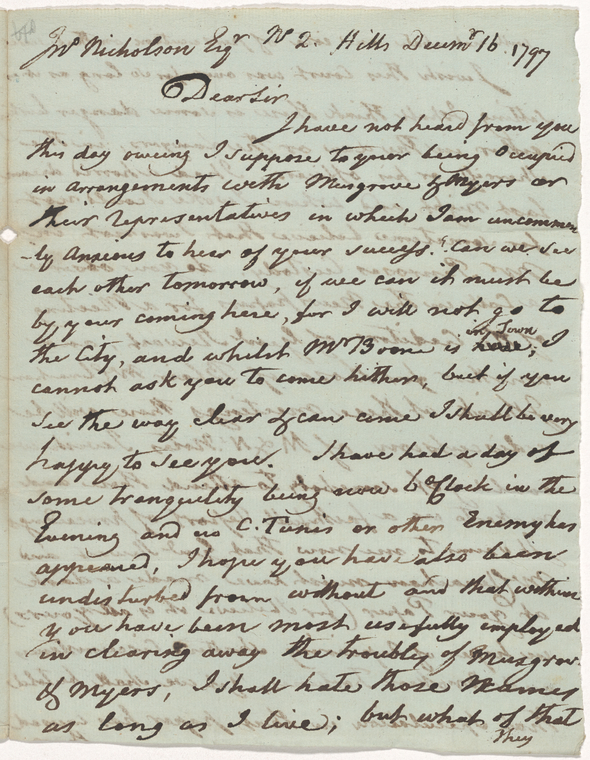 Jnº Nicholson Esqr Nº 2. Hills Decemr 16 1797
Dear Sir
I have not heard from you
this day owing I suppose to your being Occupied
in arrangements with Musgrove & Myers or
their representatives in which I am uncommon
-ly Anxious to hear of your success. Can we see
each other tomorrow, if we can it must be
by your coming here, for I will not go to
the City, and whilst Mr Boone is in Town, I
cannot ask you to come hither, but if you
see the way clear & can come I shall be very
happy to see you. I have had a day of
some tranquility being now 6 oClock in the
Evening and no C. Tunis or other Enemy has
appeared, I hope you have also been
undisturbed from without and that within
you have been most usefully employed
in clearing away the troubles of Musgrove
& Myers, I shall hate those Names
as long as I live; but what of that
They